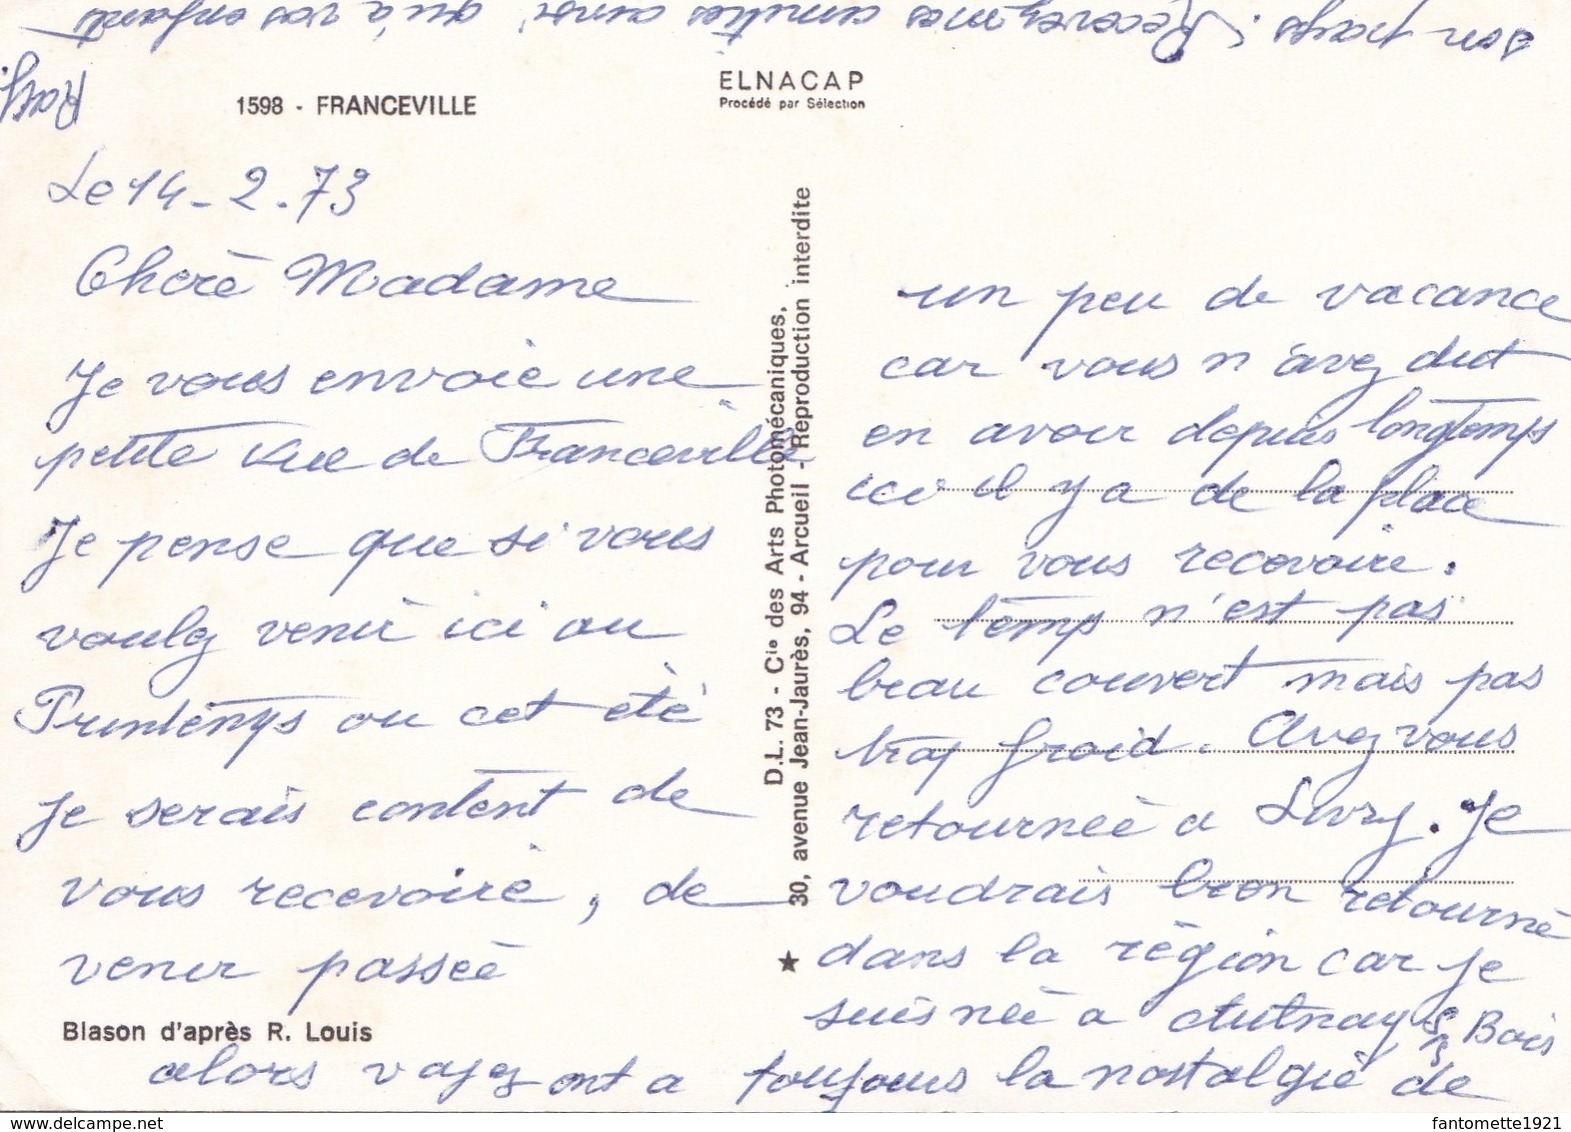 1598 - FRANCEVILLE
ELNACAP
Procédé par Sélection
Le 14 - 2 . 73
Cherè Madame
Je vous envoie une
petite vue de Franceville
Je pense que si vous
voulez venir ici au
Printemps ou cet été
je serais content de
vous recevoire, de
venir passeé
un peu de vacance
car vous n'avez dut
en avoir depuis longtemps
ici il y a de la place
pour vous recevoire.
Le temps n'est pas
beau couvert mais pas
trop froid. Avez vous
retourneé a Livry. Je
voudrais bien retourné
dans la région car je
suis neé a Aulnay s/s Bois
alors voyez ont a toujours la nostalgie de
son pays. Recevez mes amitiés ainsi qu'à vos enfants
Roxy.
Blason d'après R. Louis
D.L. 73 - Cie des Arts Photomécaniques,
30, avenue Jean-Jaurès, 94 - Arcueil - Reproduction interdite
delcampe.net
fantomette1921